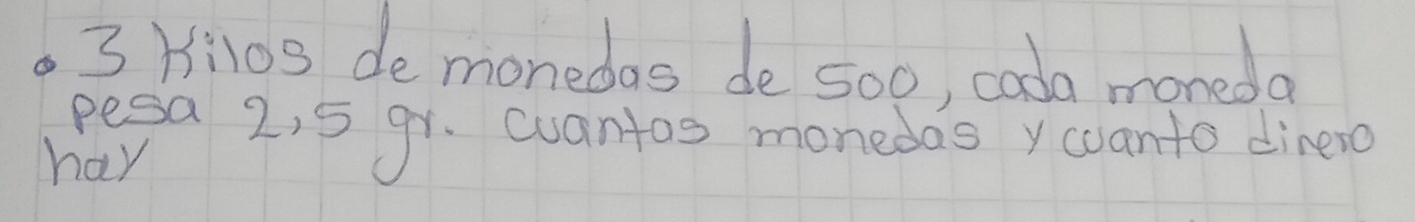 • 3 Kilos de monedas de 500, cada moneda
pesa 2,5 gr. cuantas monedas y cuanto dinero
hay